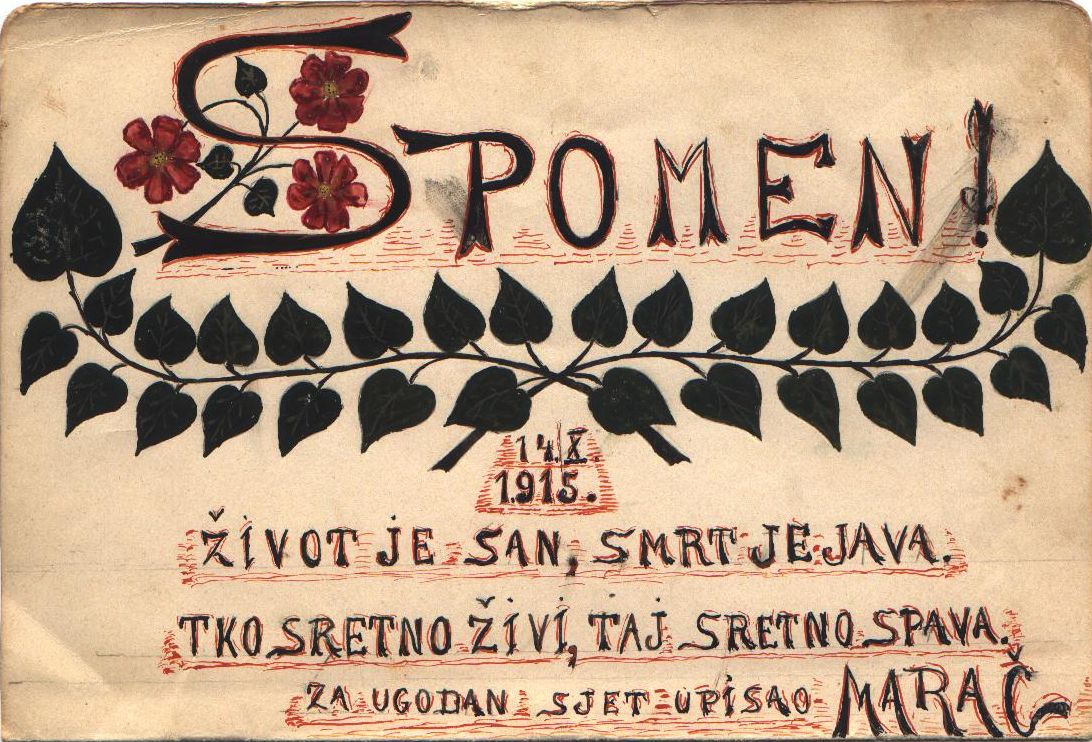 SPOMEN!
14.X.
1915.
ŽIVOT JE SAN, SMRT JE JAVA.
TKO SRETNO ŽIVI, TAJ SRETNO SPAVA.
ZA UGODAN SJET UPISAO MARAČ